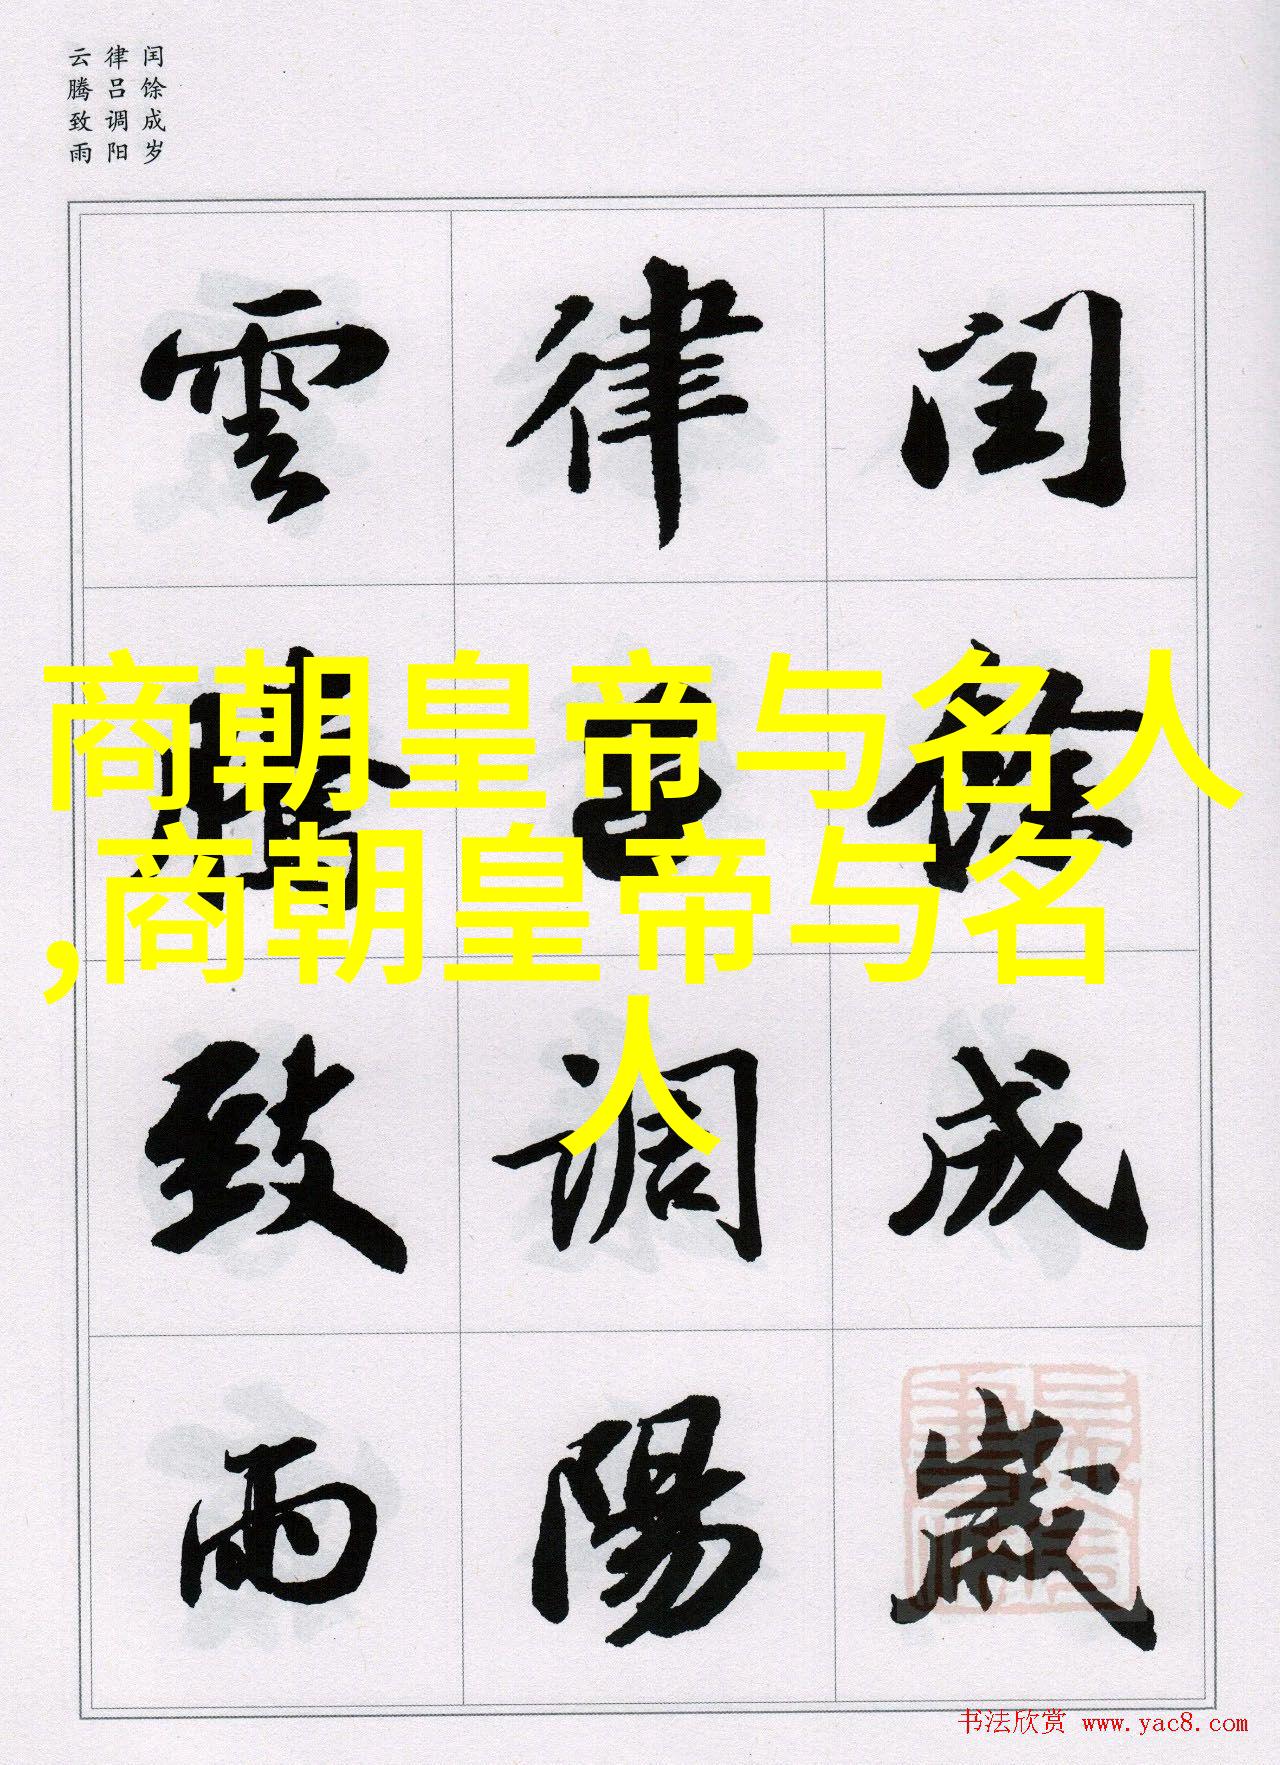 闰馀成岁
律吕调阳
云腾致雨
閏餘成歲
律吕調陽
雲騰致雨
商朝皇帝与名人
,商朝皇帝与名
人
书法欣赏 www.yac8.com